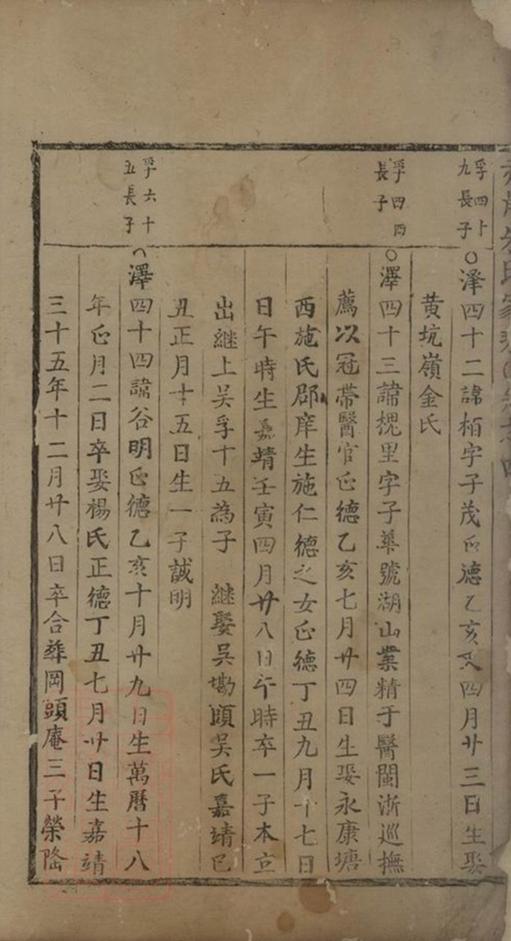 孚四十
九長子
澤四十二諱栢字子茂正德乙亥又四月廿三日生娶
黄坑嶺金氏
孚四四
長子
澤四十三諱槐里字子華號湖山業精于醫閩浙巡撫
薦以冠帶醫官正德乙亥七月廿四日生娶永康塘
西施氏郡庠生施仁德之女正德丁丑九月十七日
日午時生嘉靖壬寅四月廿八日午時卒一子本立
出繼上吴孚十五為子 継娶吴塘頭吴氏嘉靖已
丑正月十五日生一子誠明
孚六十
五長子
澤四十四諱谷明正德乙亥十月廿九日生萬曆十八
年正月二日卒娶楊氏正德丁丑七月廿日生嘉靖
三十五年十二月廿八日卒合葬岡頭庵三子榮隆